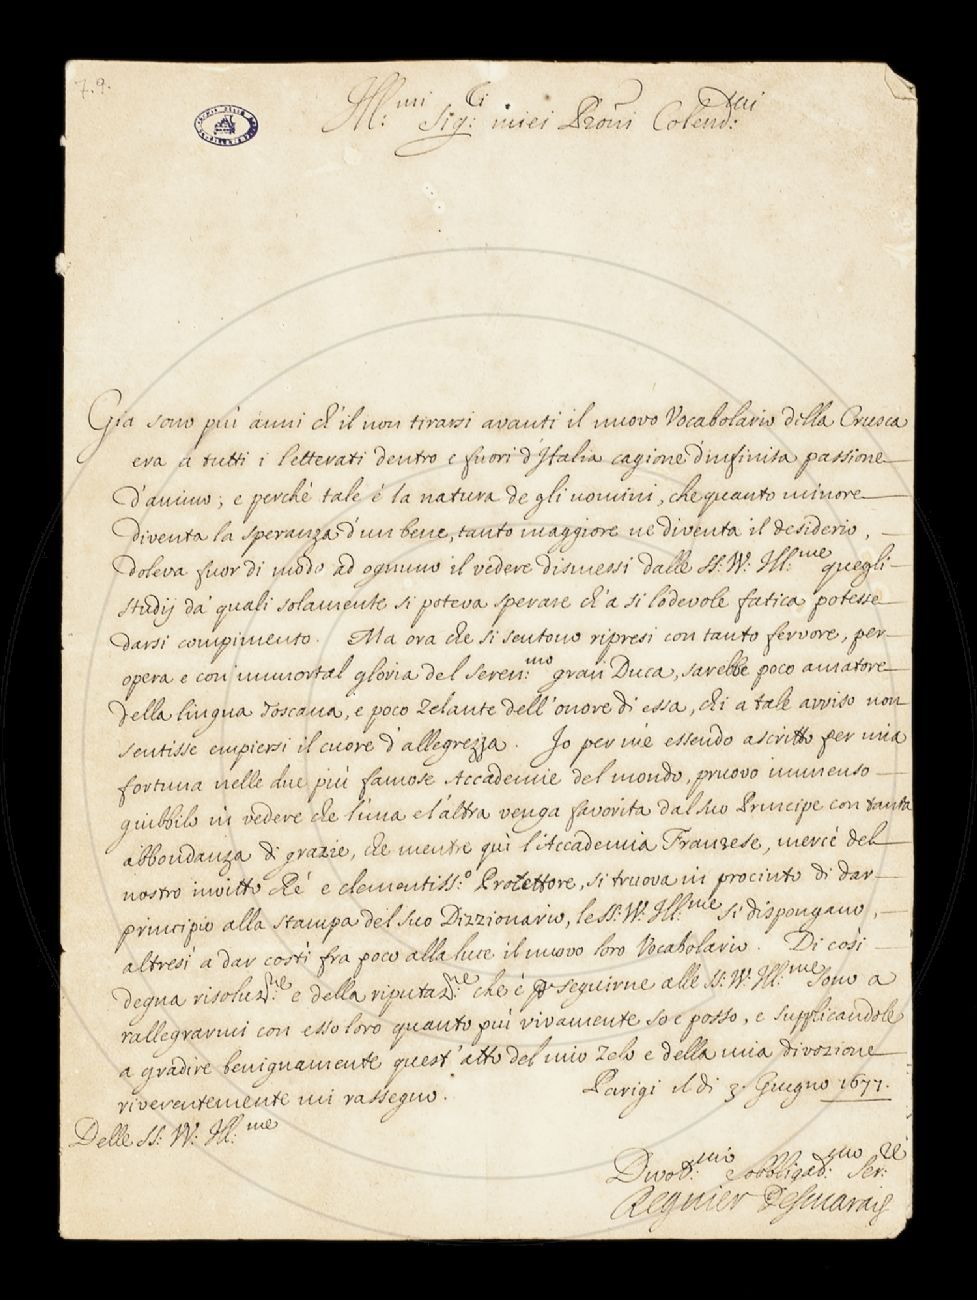 79.
Ill:mi Sig:ri miei Proni Colend:mi
Gia sono più anni ch'il non tirarsi avanti il nuovo Vocabolario della Crusca
era a tutti i letterati dentro e fuori d'Italia cagione d'infinita passione
d'animo; e perchè tale è la natura de gli uomini, che quanto minore
diventa la speranza d'un bene, tanto maggiore ne diventa il desiderio,
doleva fuor di modo ad ognuno il vedere dismessi dalle SS.VV. Ill:me quegli
studij da' quali solamente si poteva sperare ch'a si lodevole fatica potesse
darsi compimento. Ma ora che si sentono ripresi con tanto fervore, per
opera e con immortal gloria del Seren:mo gran Duca, sarebbe poco amatore
della lingua Toscana, e poco zelante dell'onore di essa, chi a tale avviso non
sentisse empiersi il cuore d'allegrezza. Io per me essendo ascritto per mia
fortuna nelle due più famose Accademie del mondo, pruovo immenso
giubbilo in vedere che l'una e l'altra venga favorita dal suo Principe con tanta
abbondanza di grazie, che mentre quì l'Accademia Franzese, mercè del
nostro invitto Rè e clementiss:o Protettore, si truova in procinto di dar
principio alla stampa del suo Dizzionario, le SS.VV. Ill:me si dispongano,
altresì a dar costì fra poco alla luce il nuovo loro Vocabolario. Di così
degna risoluz:ne e della riputaz:ne che è p seguirne alle SS.VV. Ill:me sono a
rallegrarmi con esso loro quanto più vivamente so e posso, e supplicandole
a gradire benignamente quest'atto del mio zelo e della mia divozione
riverentemente mi rassegno. Parigi il di 3. Giugno 1677.
Delle SS. VV. Ill:me
Divot:mo e obbligat:mo Ser:re
Regnier Desmarais